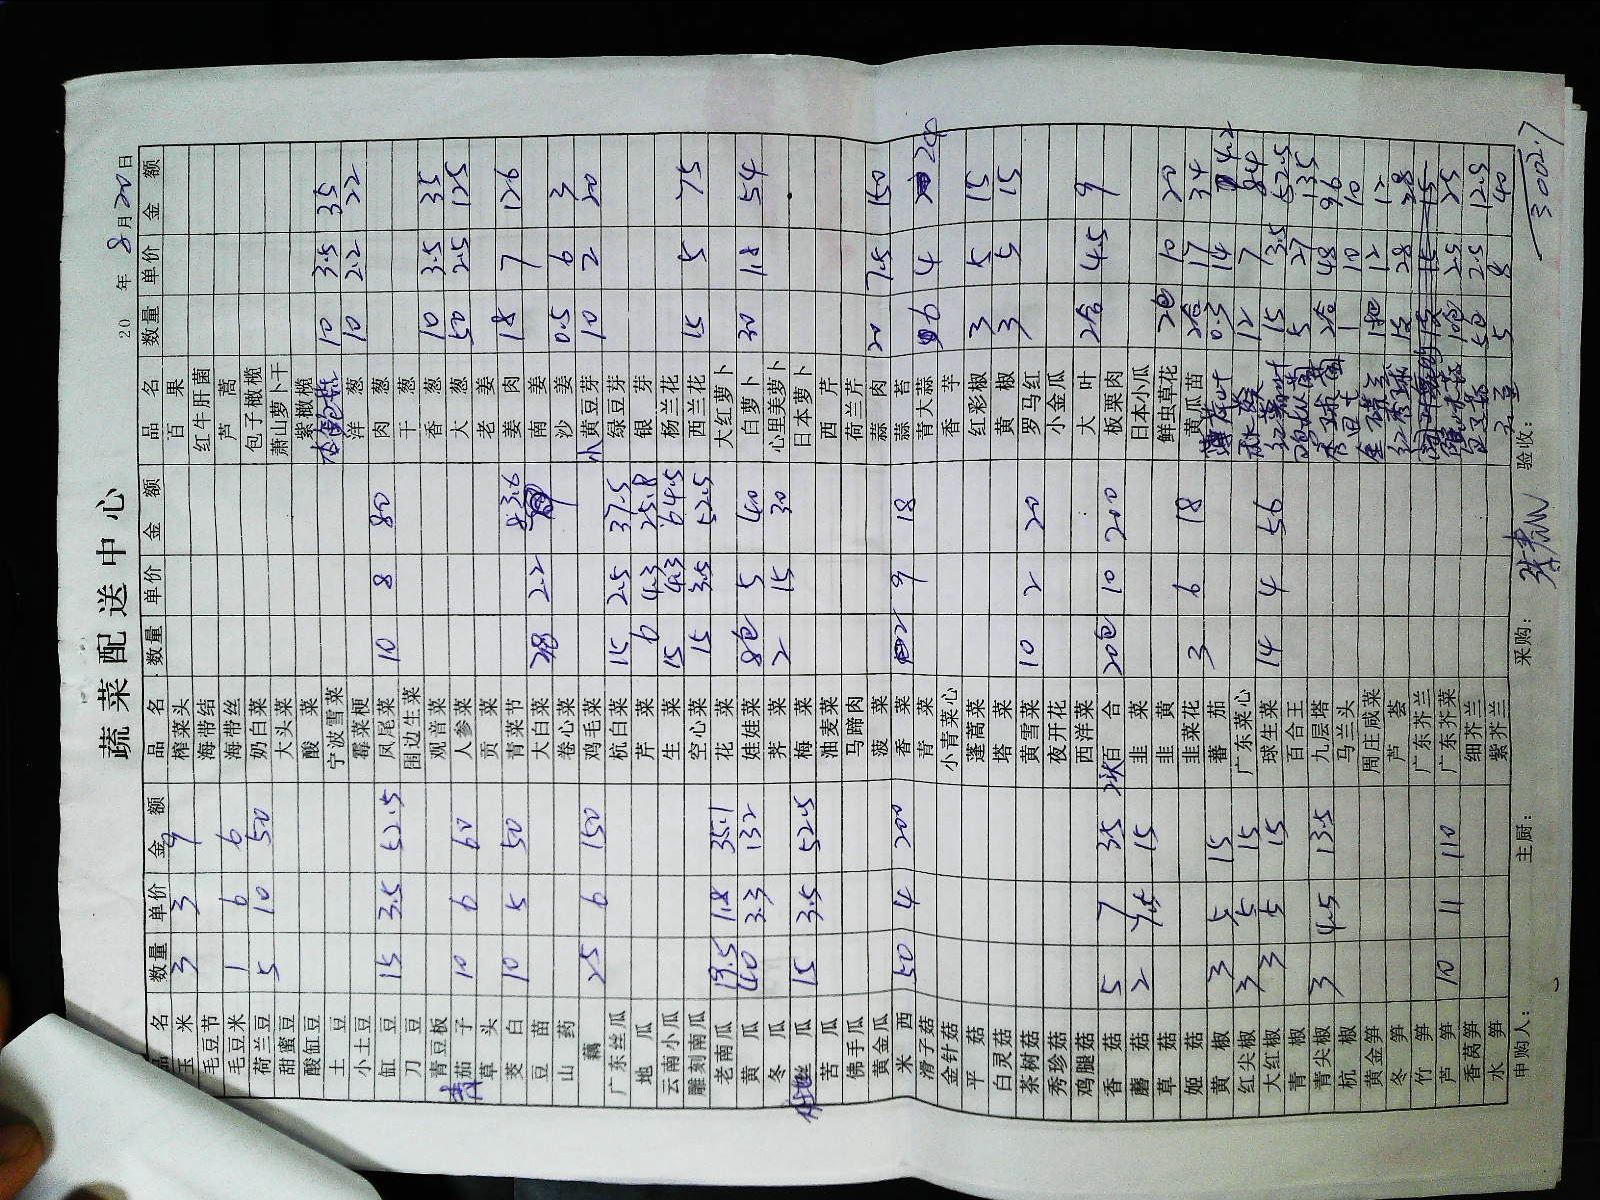 蔬菜配送中心
20 年 8 月 20 日
品名 数量 单价 金额 品名 数量 单价 金额 品名 数量 单价 金额
玉米 3 3 9 榨菜头 百果
毛豆节 海带结 红牛肝菌
毛豆米 1 6 6 海带丝 芦蒿
荷兰豆 5 10 50 奶白菜 包子橄榄
甜蜜豆 大头菜 萧山萝卜干
酸缸豆 酸菜 紫橄榄
土豆 宁波雪菜 10 3.5 35
小土豆 霉菜梗 洋葱 10 2.2 22
缸豆 15 3.5 52.5 凤尾菜 10 8 80 肉葱
刀豆 围边生菜 干葱
青豆板 观音菜 香葱 10 3.5 35
茄子 10 6 60 人参菜 大葱 50 2.5 125
草头 贡菜 老姜
茭白 10 5 50 青菜节 83.6 姜肉 18 7 126
豆苗 大白菜 38 2.2 南姜
山药 卷心菜 沙姜 0.5 6 3
藕 25 6 150 鸡毛菜 小黄豆芽 10 2 20
广东丝瓜 杭白菜 15 2.5 37.5 绿豆芽
地瓜 芹菜 6 4.3 25.8 银芽
云南小瓜 生菜 15 4.3 64.5 杨兰花
雕刻南瓜 空心菜 15 3.5 52.5 西兰花 15 5 75
老南瓜 19.5 1.8 35.1 花菜 大红萝卜
黄瓜 40 3.3 132 娃娃菜 8包 5 40 白萝卜 30 1.8 54
冬瓜 荠菜 2 15 30 心里美萝卜
丝瓜 15 3.5 52.5 梅菜 日本萝卜
苦瓜 油麦菜 西芹
佛手瓜 马蹄肉 荷兰芹
黄金瓜 菠菜 蒜肉 20 7.5 150
米西 50 4 200 香菜 2 9 18 蒜苔
滑子菇 青菜 青大蒜 6 4 24
金针菇 小青菜心 香芋
平菇 蓬蒿菜 红彩椒 3 5 15
白灵菇 塔菜 黄椒 3 5 15
茶树菇 黄雪菜 10 2 20 罗马红
秀珍菇 夜开花 小金瓜
鸡腿菇 西洋菜 大叶 2合 4.5 9
香菇 5 7 35 百合 20包 10 200 板栗肉
蘑菇 2 7.5 15 韭菜 日本小瓜
草菇 韭黄 鲜虫草花 2包 10 20
姬菇 韭菜花 3 6 18 黄瓜苗 2合 17 34
黄椒 3 5 15 蕃茄 0.3 14 4.2
红尖椒 3 5 15 广东菜心 12 7 84
大红椒 3 5 15 球生菜 14 4 56 15 3.5 52.5
青椒 百合王 5 27 135
青尖椒 3 4.5 13.5 九层塔 2合 48 96
杭椒 马兰头 1 10 10
黄金笋 周庄咸菜 12 12
冬笋 芦荟 28 28
竹笋 广东芥兰 15 15
芦笋 10 11 110 广东芥菜 10包 2.5 25
香莴笋 细芥兰 5包 2.5 12.5
水笋 紫芥兰 5 8 40
申购人: 主厨: 采购: 验收: 3002.7